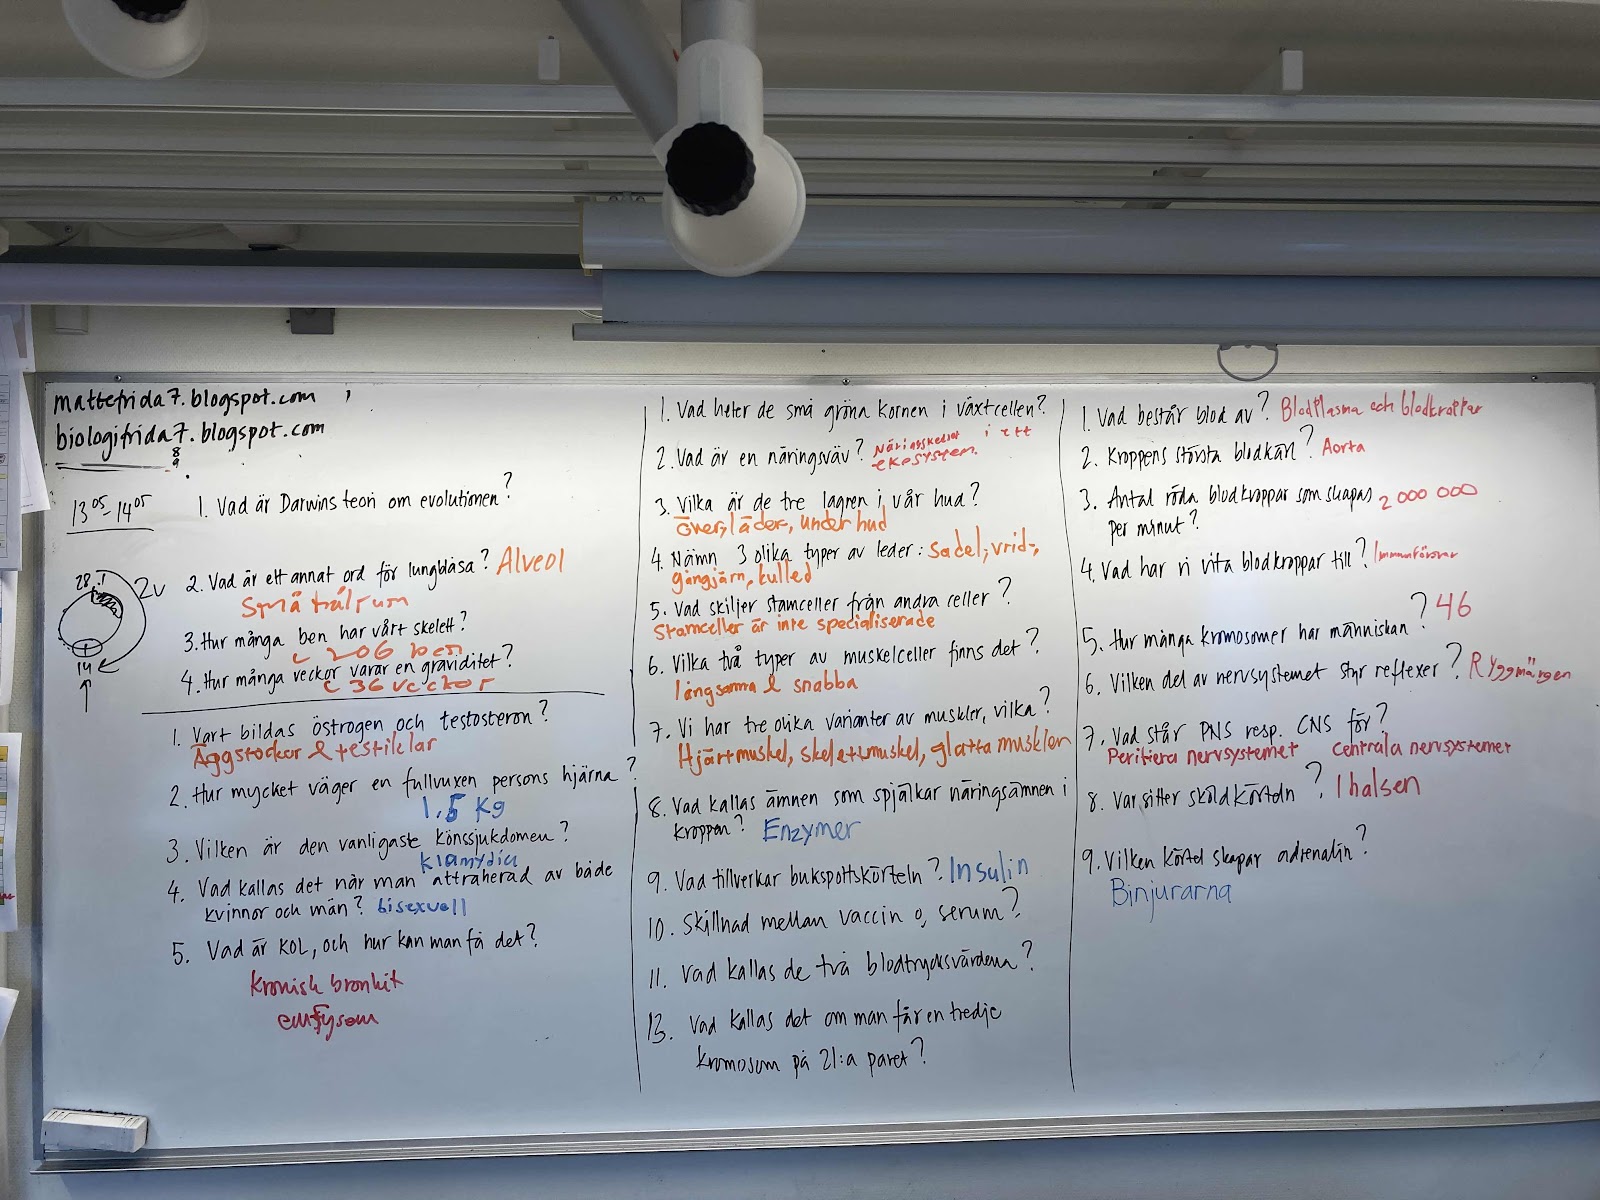 mattefrida7.blogspot.com
biologifrida7.blogspot.com
8
9
13 05 - 14 05
1. Vad är Darwins teori om evolutionen?
28 1
2v
14
2. Vad är ett annat ord för lungblåsa? Alveol
3. Hur många ben har vårt skelett?
206 ben
4. Hur många veckor varar en graviditet?
36 veckor
1. Vart bildas östrogen och testosteron?
Äggstockar & testiklar
2. Hur mycket väger en fullvuxen persons hjärna?
1,5 kg
3. Vilken är den vanligaste könssjukdomen?
klamydia
4. Vad kallas det när man attraherad av både
kvinnor och män? bisexuell
5. Vad är KOL, och hur kan man få det?
kronisk bronkit
emfysom
1. Vad heter de små gröna kornen i växtcellen?
2. Vad är en näringsväv? Näringskedjor i ett
ekosystem.
3. Vilka är de tre lagren i vår hud?
över, läder, under hud
4. Nämn 3 olika typer av leder: Sadel, vrid-,
gångjärn, kulled
5. Vad skiljer stamceller från andra celler?
Stamceller är inte specialiserade
6. Vilka två typer av muskelceller finns det?
långsamma & snabba
7. Vi har tre olika varianter av muskler, vilka?
Hjärtmuskel, skelettmuskel, glatta muskler
8. Vad kallas ämnen som spjälkar näringsämnen i
kroppen? Enzymer
9. Vad tillverkar bukspottskörteln? Insulin
10. Skillnad mellan vaccin o, serum?
11. Vad kallas de två blodtrycksvärdena?
13. Vad kallas det om man får en tredje
kromosom på 21:a paret?
1. Vad består blod av? Blodplasma och blodkroppar
2. Kroppens största blodkärl? Aorta
3. Antal röda blodkroppar som skapas 2 000 000
per minut?
4. Vad har vi vita blodkroppar till? Immunförsvar
5. Hur många kromosomer har människan? 46
6. Vilken del av nervsystemet styr reflexer? Ryggmärgen
7. Vad står PNS resp. CNS för?
Peritiera nervsystemet centrala nervsystemet
8. Var sitter sköldkörteln? I halsen
9. Vilken körtel skapar adrenalin?
Binjurarna